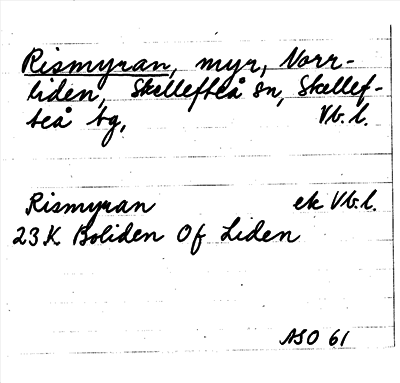 Rismyran, myr, Norr-
liden, Skellefteå sn, Skellef-
teå tg, Vb. l.
Rismyran ek Vb. l.
23K Boliden Of Liden
ASO 61